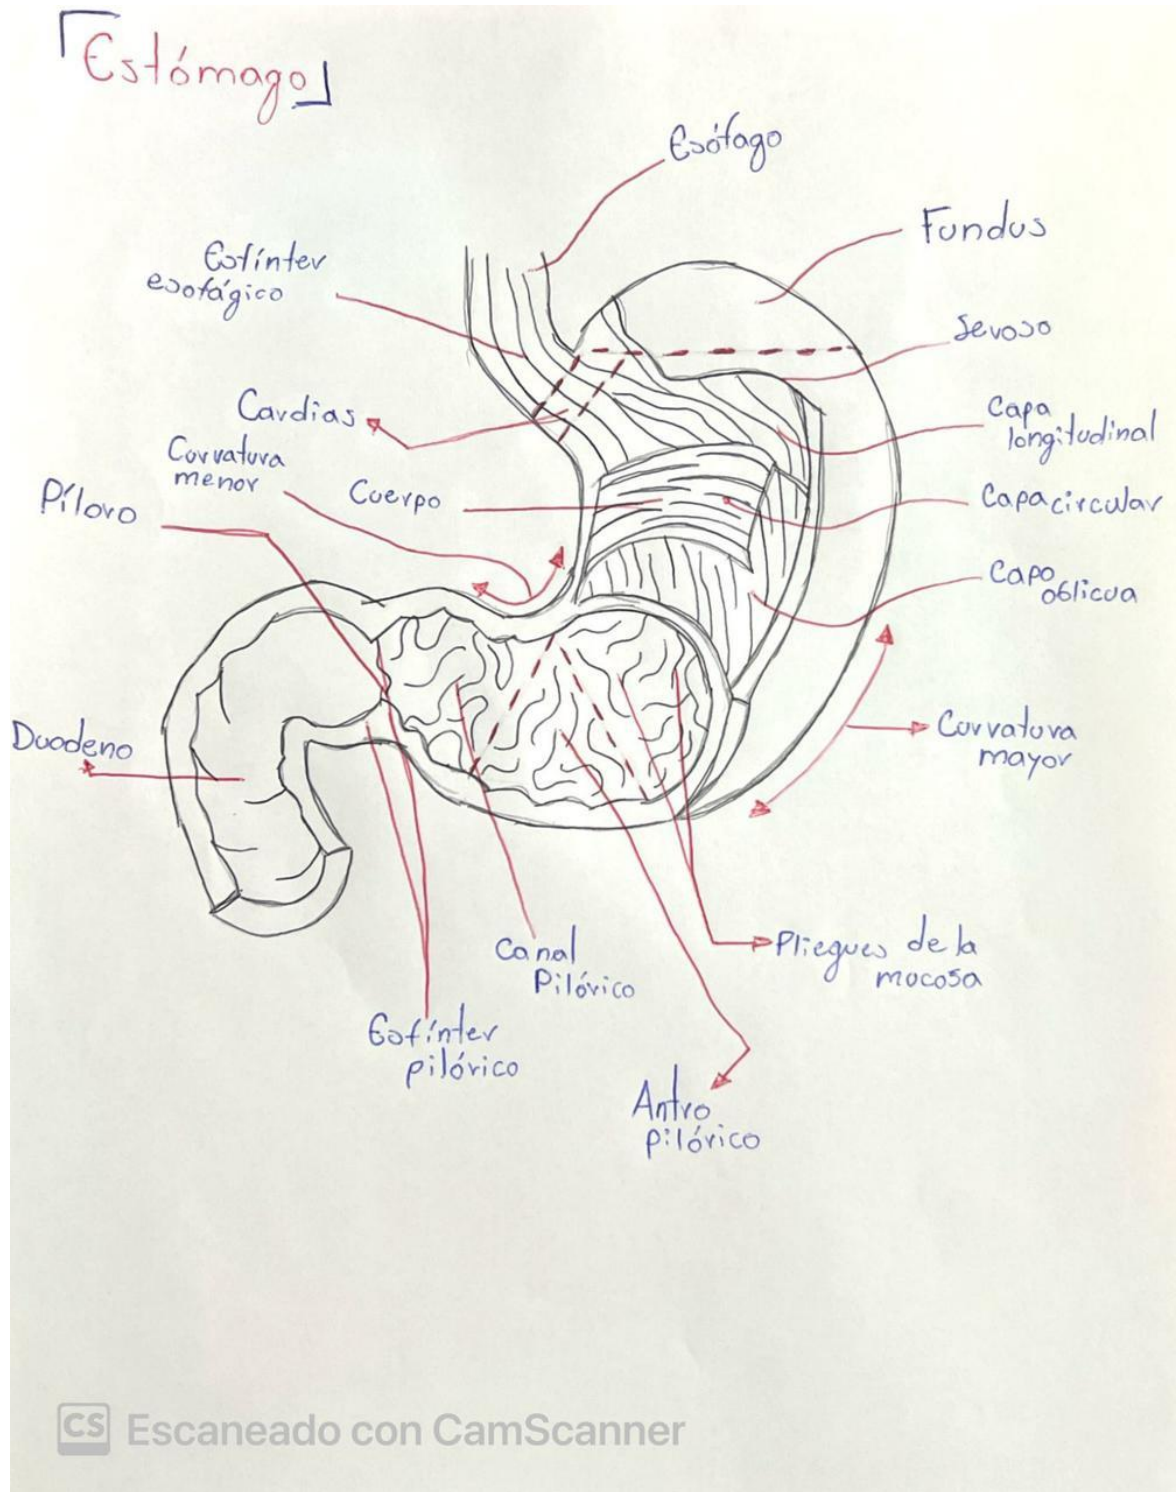 「Estómago」
Esófago
Fundus
Esfínter
esofágico
Seroso
Cardias
Capa
longitudinal
Curvatura
menor
Cuerpo
Píloro
Capa circular
Capa
oblicua
Duodeno
Curvatura
mayor
Canal
Pilórico
Pliegues de la
mucosa
Esfínter
pilórico
Antro
pilórico
CS Escaneado con CamScanner